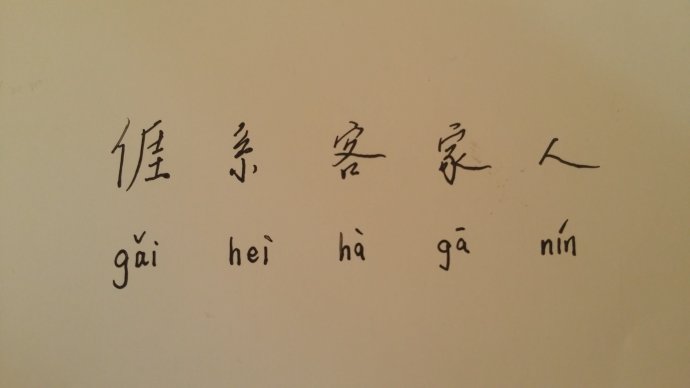 𠊎系客家人
gǎi heì hà gā nín